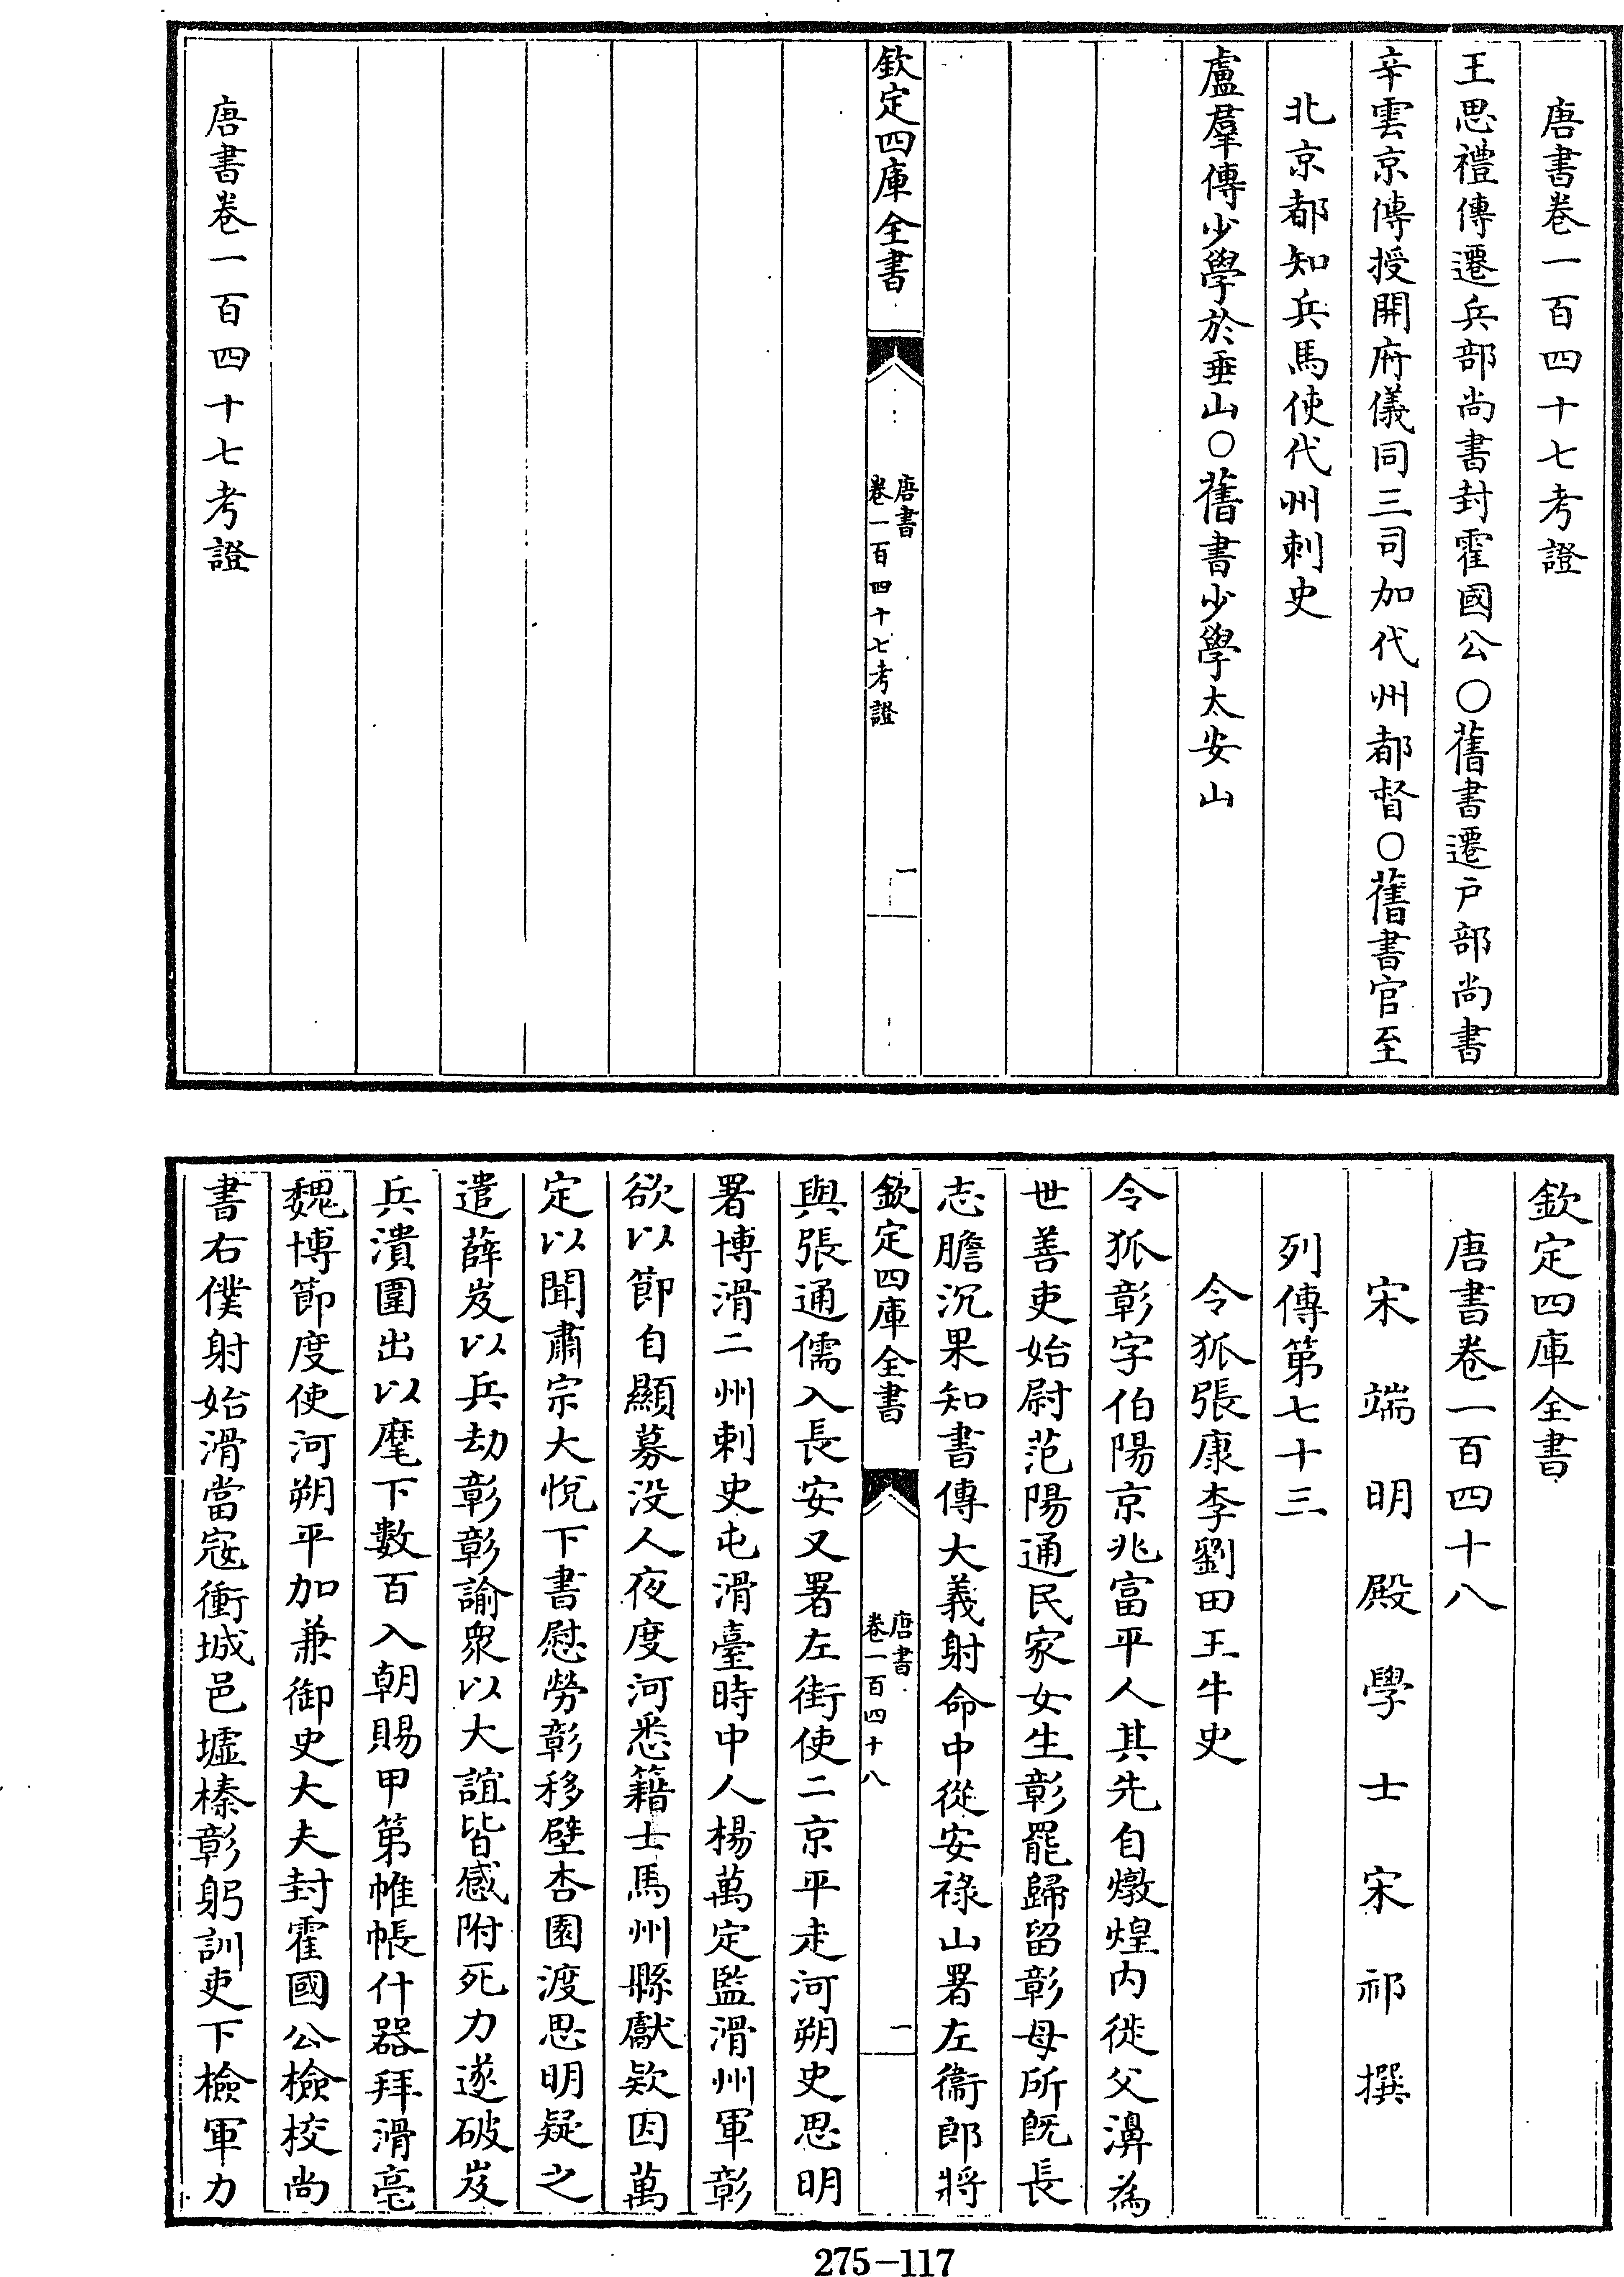 唐書卷一百四十七考證
王思禮傳遷兵部尚書封霍國公○舊書遷戶部尚書
辛雲京傳授開府儀同三司加代州都督○舊書官至
北京都知兵馬使代州刺史
盧羣傳少學於垂山○舊書少學太安山
欽定四庫全書
唐書
卷一百四十七考證
一
唐書卷一百四十七考證
欽定四庫全書
唐書卷一百四十八
宋端明殿學士宋祁撰
列傳第七十三
令狐張康李劉田王牛史
令狐彰字伯陽京兆富平人其先自燉煌内徙父濞為
世善吏始尉范陽通民家女生彰罷歸留彰母所既長
志膽沉果知書傳大義射命中從安祿山署左衞郎將
欽定四庫全書
唐書
卷一百四十八
一
與張通儒入長安又署左街使二京平走河朔史思明
署博滑二州刺史屯滑臺時中人楊萬定監滑州軍彰
欲以節自顯募没人夜度河悉籍士馬州縣獻欵因萬
定以聞肅宗大悅下書慰勞彰移壁杏園渡思明疑之
遣薛岌以兵劫彰彰諭衆以大誼皆感附死力遂破岌
兵潰圍出以麾下數百入朝賜甲第帷帳什器拜滑亳
魏博節度使河朔平加兼御史大夫封霍國公檢校尚
書右僕射始滑當寇衝城邑墟榛彰躬訓吏下檢軍力
275-117